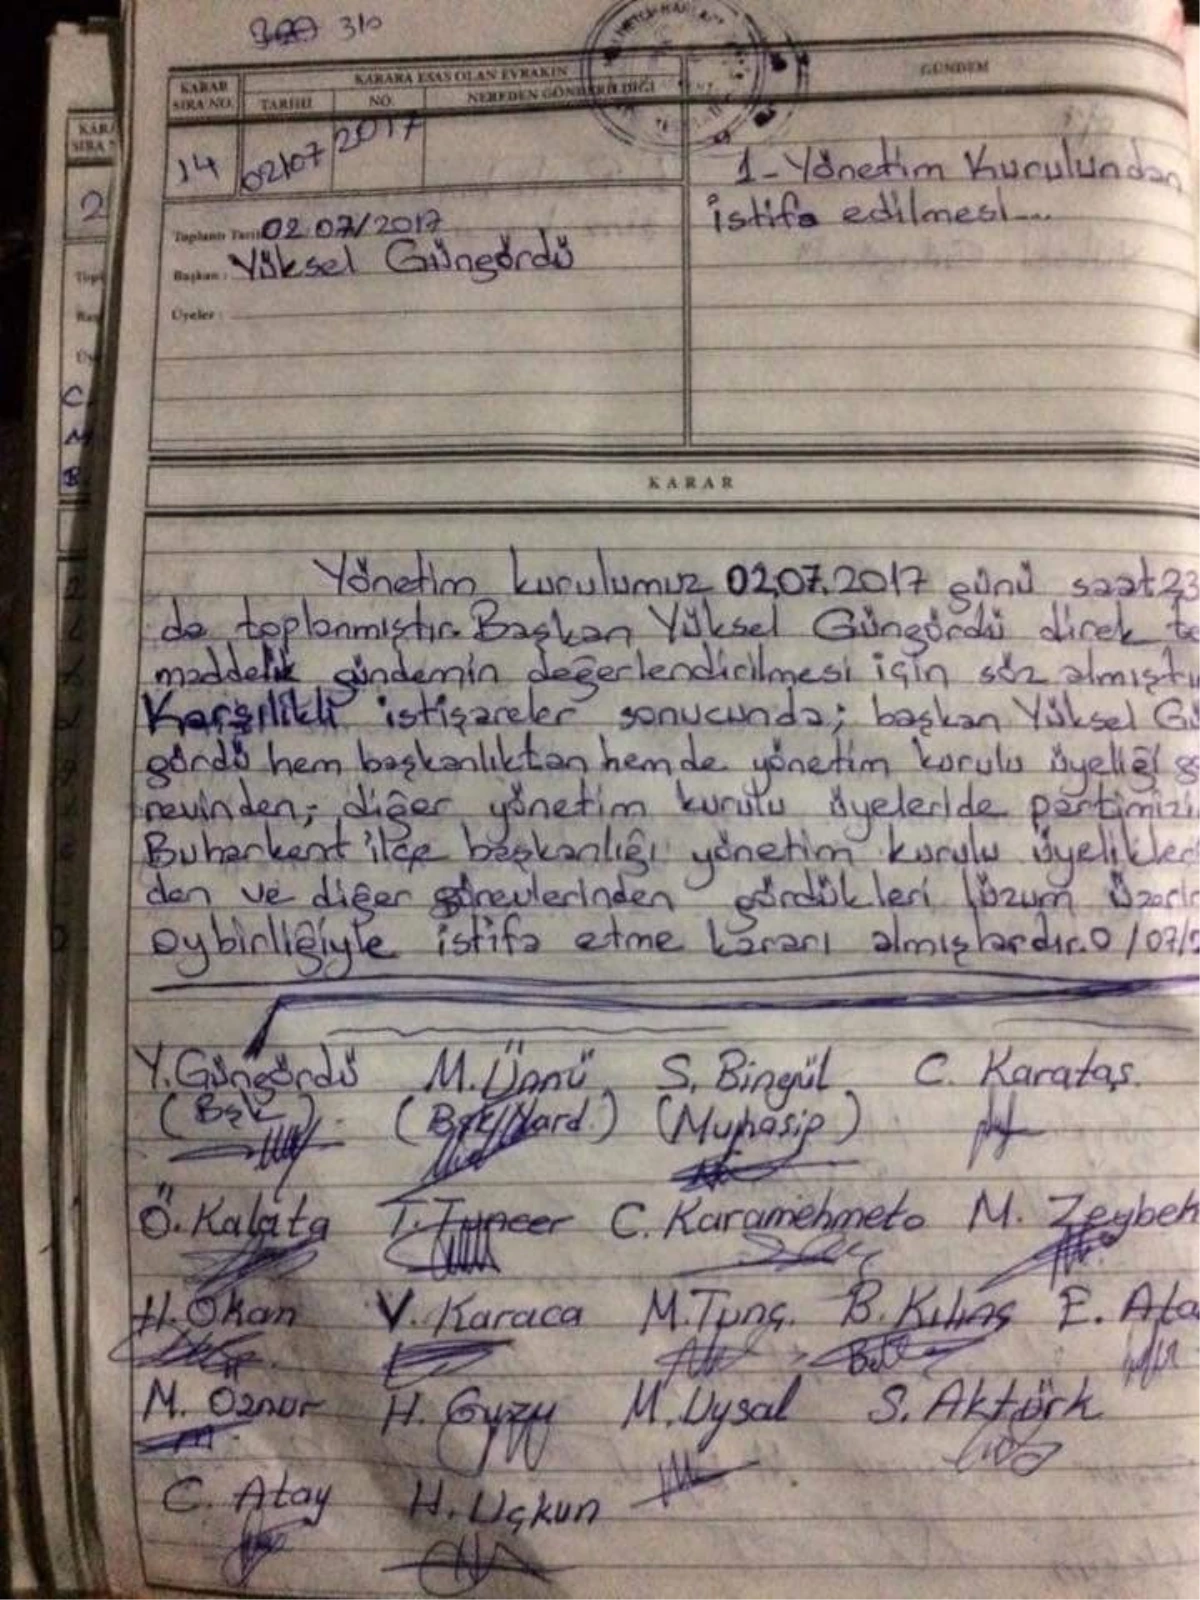 310
KARAR SIRA NO.
KARARA ESAS OLAN EVRAKIN
GÜNDEM
TARİHİ
NO.
NEREDEN GÖNDERİLDİĞİ
14
02/07
2017
1- Yönetim Kurulundan
istifa edilmesi...
Toplantı Tari 02 07/2017
Başkan: Yüksel Güngördü
Üyeler:
KARAR
Yönetim kurulumuz 02.07.2017 günü saat 23
da toplanmıştır. Başkan Yüksel Güngördü direk te
maddelik gündemin değerlendirilmesi için söz almıştı
Karşılıklı istişareler sonucunda; başkan Yüksel Gü
gördü hem başkanlıktan hemde yönetim kurulu üyeliği gö
revinden; diğer yönetim kurulu üyeleride partimizi
Buharkent ilçe başkanlığı yönetim kurulu üyelikleri
den ve diğer görevlerinden gördükleri lüzum üzerin
oybirliğiyle istifa etme kararı almışlardır. 0 /07/2
Y. Güngördü M. Ünnü S. Bingül C. Karataş.
(Bşk) (Bşk/Yard.) (Muhasip)
Ö. Kalata T. Tuncer C. Karamehmeto M. Zeybek
H. Okan V. Karaca M. Tunç. B. Kılınç E. Ata
M. Öznur H. Guzu M. Uysal S. Aktürk
C. Atay H. Uçkun
KARA
SIRA N
2
Topl
Baş
Üy
C
M
B